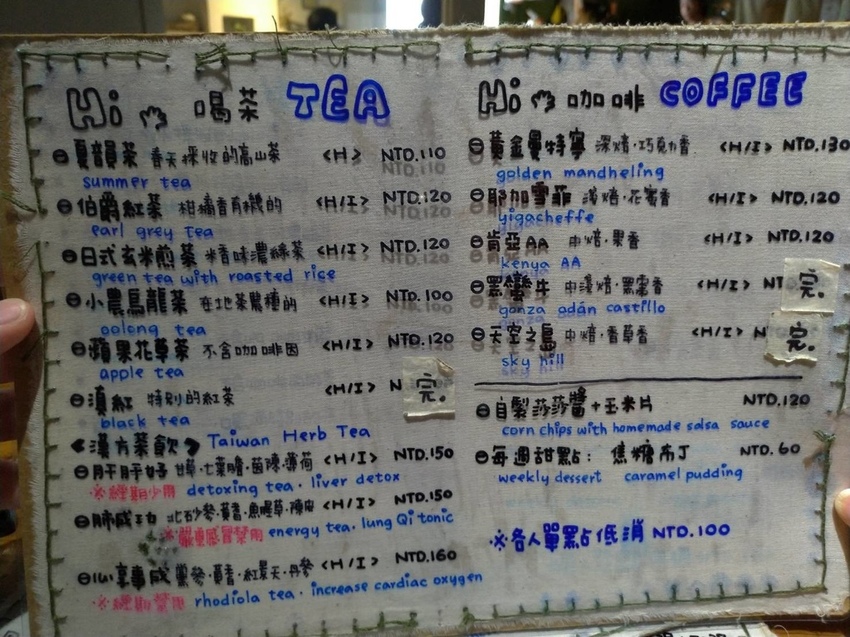 Hi 喝茶 TEA
夏韻茶 春天採收的高山茶 <H> NTD.110
summer tea
伯爵紅茶 柑橘香有機的 <H/I> NTD.120
earl grey tea
日式玄米煎茶 米香味濃綠茶 <H/I> NTD.120
green tea with roasted rice
小農烏龍茶 在地茶農種的 <H/I> NTD.100
oolong tea
蘋果花草茶 不含咖啡因 <H/I> NTD.120
apple tea
滇紅 特別的紅茶 <H/I> N 完.
black tea
《漢方茶飲》 Taiwan Herb Tea
肝肝好 甘草·七葉膽·茵陳·薄荷 <H/I> NTD.150
※經期少用 detoxing tea · liver detox
肺成功 北沙參·黃耆·魚腥草·陳皮 <H/I> NTD.150
※嚴重感冒禁用 energy tea · lung Qi tonic
心享事成 黨參·黃耆·紅景天·丹參 <H/I> NTD.160
※經期禁用 rhodiola tea · increase cardiac oxygen
Hi 咖啡 COFFEE
黃金曼特寧 深焙·巧克力香 <H/I> NTD.130
golden mandheling
耶加雪菲 淺焙·花蜜香 <H/I> NTD.120
yigacheffe
肯亞AA 中焙·果香 <H/I> NTD.120
kenya AA
黑蠻牛 中淺焙·黑棗香 <H/I> NT 完.
gonza adán castillo
天空之島 中焙·香草香 <H/I> N 完.
sky hill
自製莎莎醬+玉米片 NTD.120
corn chips with homemade salsa sauce
每週甜點: 焦糖布丁 NTD.60
weekly dessert caramel pudding
※各人單點低消 NTD.100